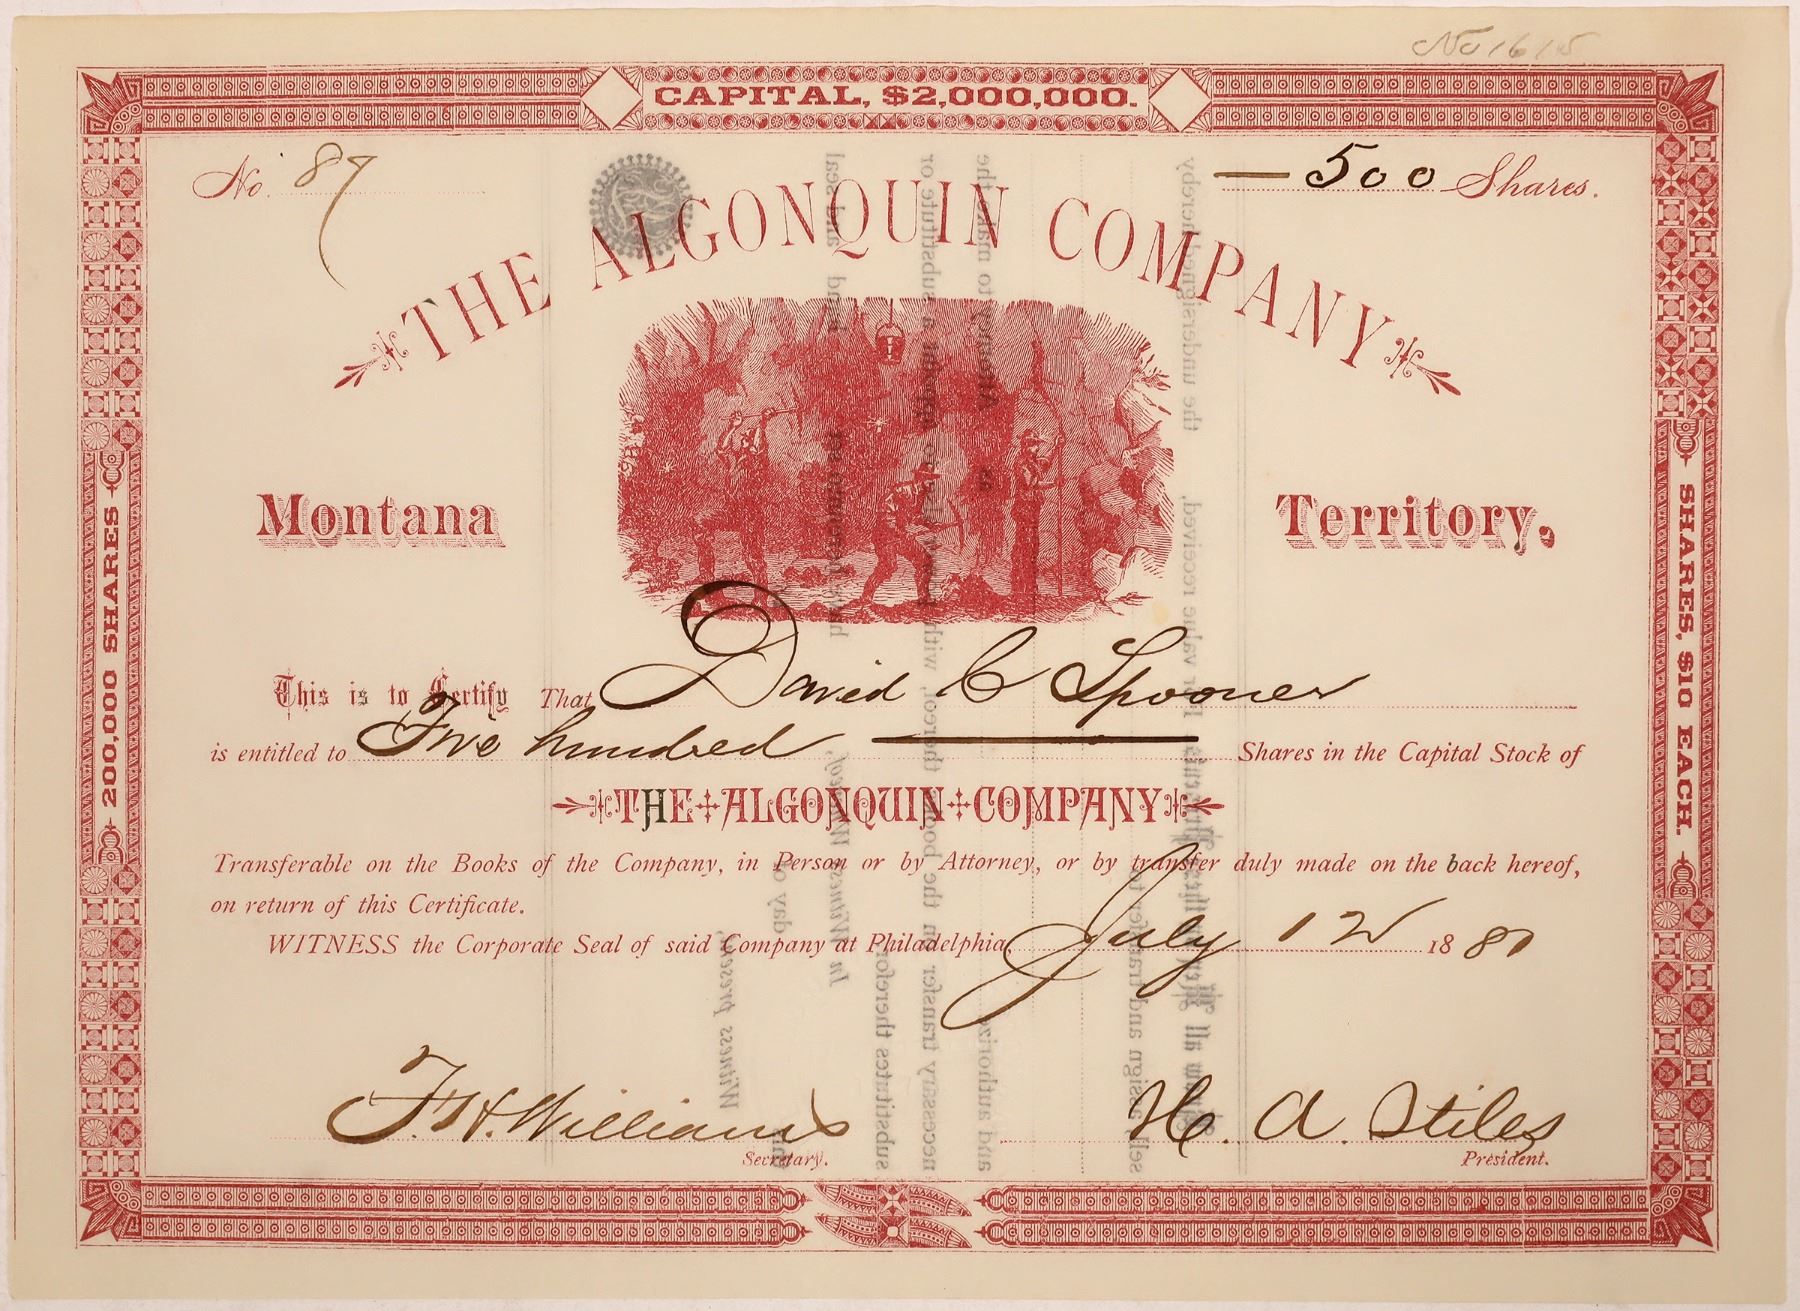 No 1615
CAPITAL, $2,000,000.
No. 87
500 Shares.
THE ALGONQUIN COMPANY
Montana Territory.
This is to Certify That David C Spooner
is entitled to Five hundred Shares in the Capital Stock of
THE ALGONQUIN COMPANY
Transferable on the Books of the Company, in Person or by Attorney, or by transfer duly made on the back hereof,
on return of this Certificate.
WITNESS the Corporate Seal of said Company at Philadelphia, July 12 1881
F. H. Williams
Secretary.
H. A. Stiles
President.
200,000 SHARES
SHARES, $10 EACH.